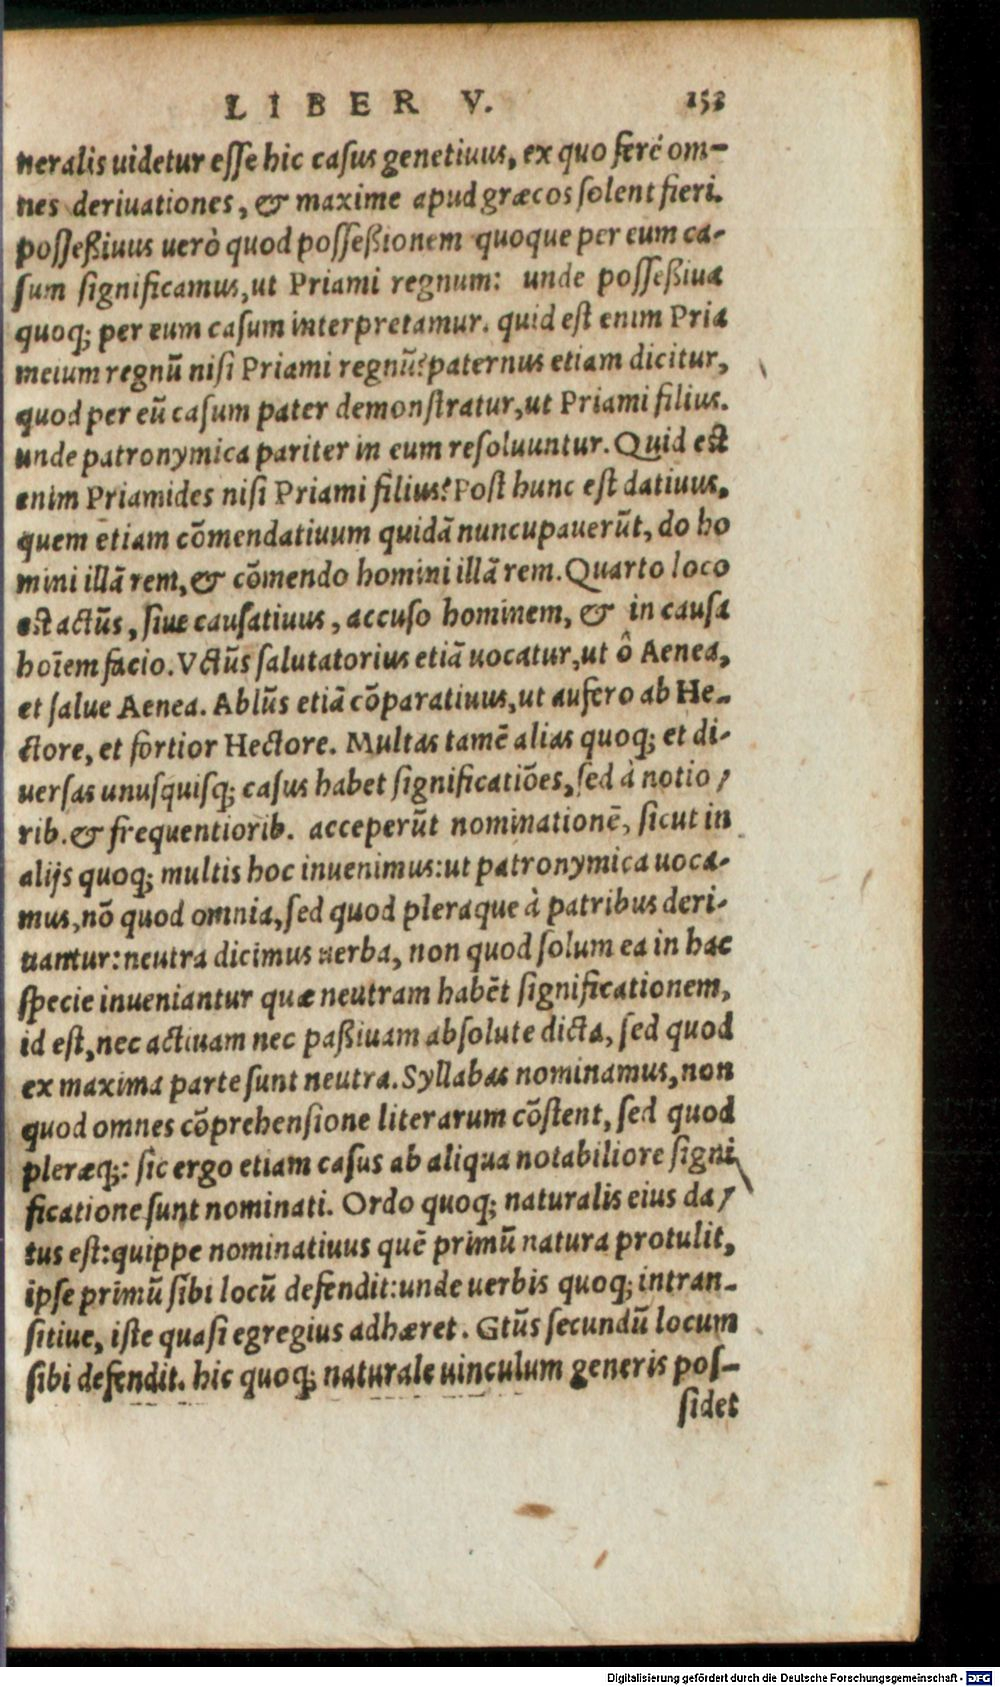 LIBER V. 152
neralis uidetur esse hic casus genetiuus, ex quo ferè om-
nes deriuationes, & maxime apud græcos solent fieri.
posseßiuus uerò quod posseßionem quoque per eum ca-
sum significamus, ut Priami regnum: unde posseßiua
quoq; per eum casum interpretamur. quid est enim Pria
meium regnū nisi Priami regnū? paternus etiam dicitur,
quod per eū casum pater demonstratur, ut Priami filius.
unde patronymica pariter in eum resoluuntur. Quid est
enim Priamides nisi Priami filius? Post hunc est datiuus,
quem etiam cōmendatiuum quidā nuncupauerūt, do ho
mini illā rem, & cōmendo homini illā rem. Quarto loco
est actūs, siue causatiuus, accuso hominem, & in causa
hoīem facio. Vctūs salutatorius etiā uocatur, ut ô Aenea,
et salue Aenea. Ablūs etiā cōparatiuus, ut aufero ab He-
ctore, et fortior Hectore. Multas tamē alias quoq; et di-
uersas unusquisq; casus habet significatiōes, sed à notio/
rib. & frequentiorib. acceperūt nominationē, sicut in
alijs quoq; multis hoc inuenimus: ut patronymica uoca-
mus, nō quod omnia, sed quod pleraque à patribus deri-
uantur: neutra dicimus uerba, non quod solum ea in hac
specie inueniantur quæ neutram habēt significationem,
id est, nec actiuam nec paßiuam absolute dicta, sed quod
ex maxima parte sunt neutra. Syllabas nominamus, non
quod omnes cōprehensione literarum cōstent, sed quod
pleræq;: sic ergo etiam casus ab aliqua notabiliore signi
ficatione sunt nominati. Ordo quoq; naturalis eius da/
tus est: quippe nominatiuus quē primū natura protulit,
ipse primū sibi locū defendit: unde uerbis quoq; intran-
sitiue, iste quasi egregius adhæret. Gtūs secundū locum
sibi defendit. hic quoq; naturale uinculum generis pos-
sidet
Digitalisierung gefördert durch die Deutsche Forschungsgemeinschaft - DFG